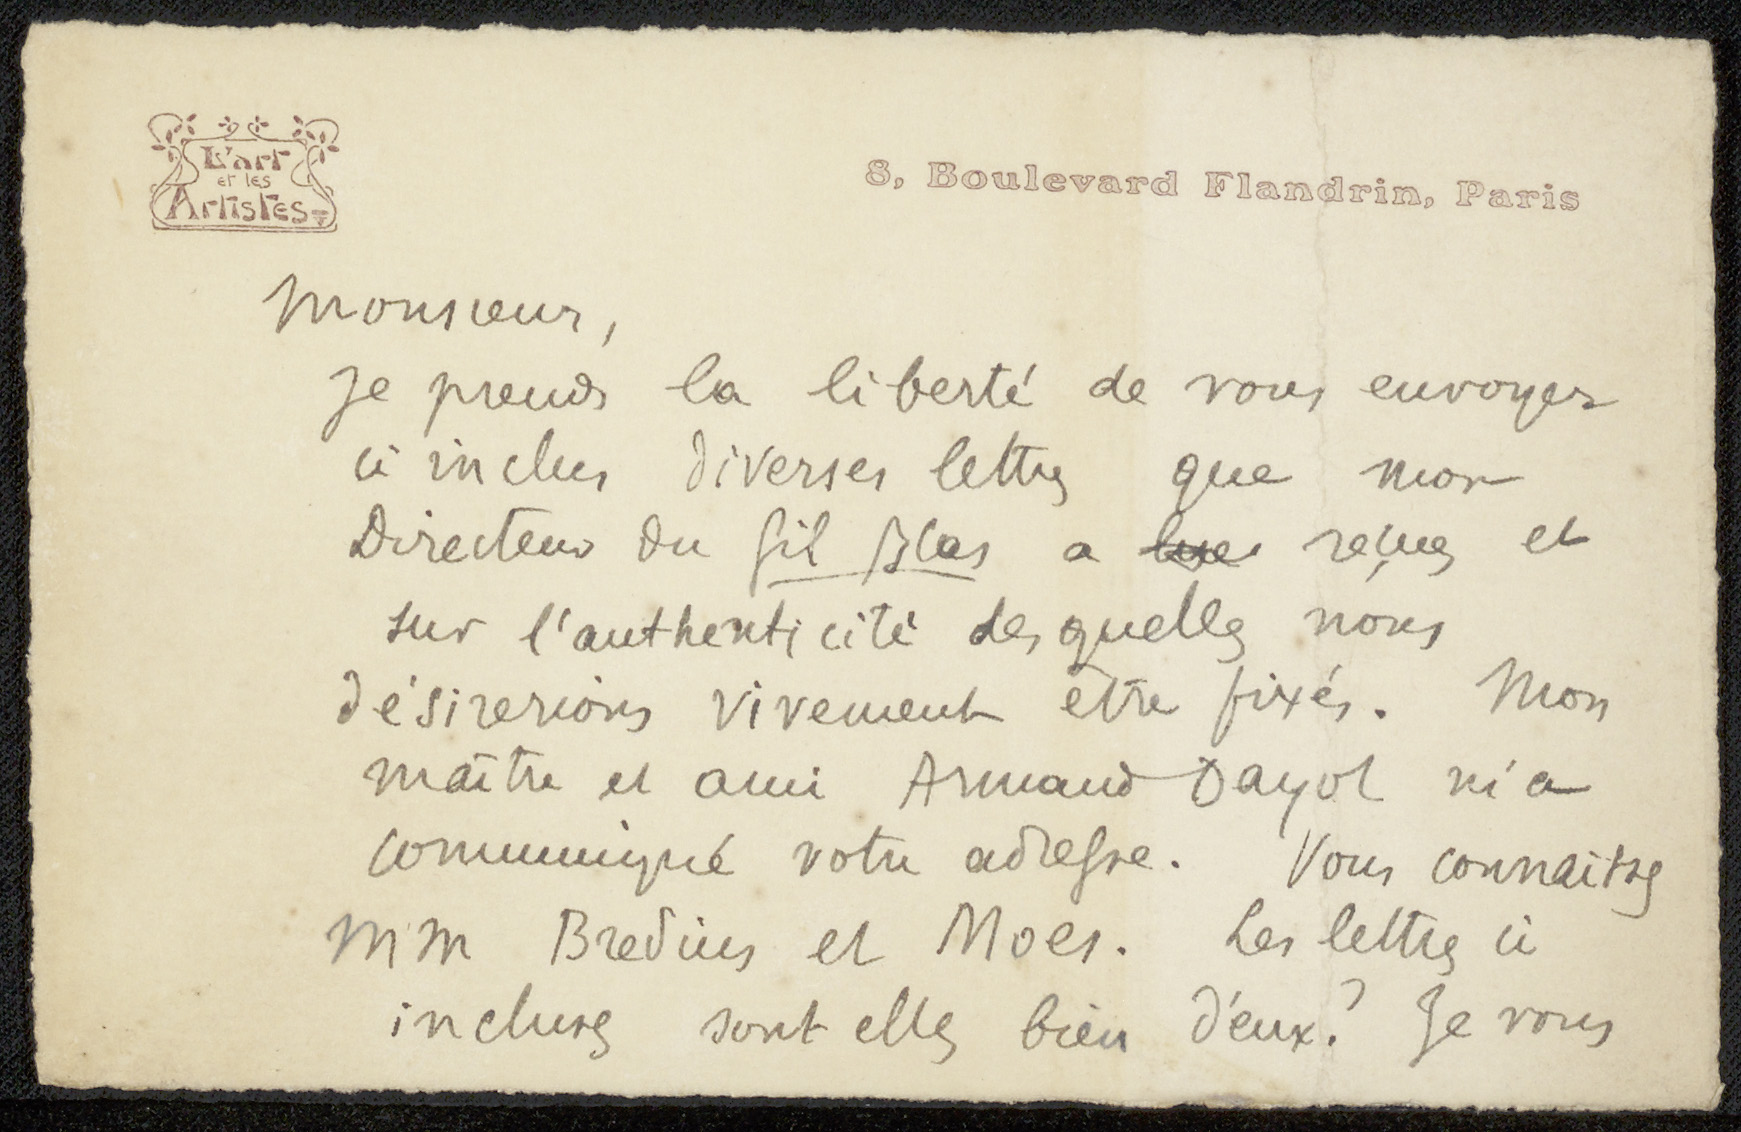 L'art
et les
Artistes
8, Boulevard Flandrin, Paris
Monsieur,
Je prends la liberté de vous envoyer
ci inclus diverses lettres que mon
Directeur du Gil Blas a reçues et
sur l'authenticité desquelles nous
désirerions vivement être fixés. Mon
maître et ami Armand Dayot m'a
communiqué votre adresse. Vous connaissez
MM Bredius et Moes. Les lettres ci
incluses sont elles bien d'eux? Je vous